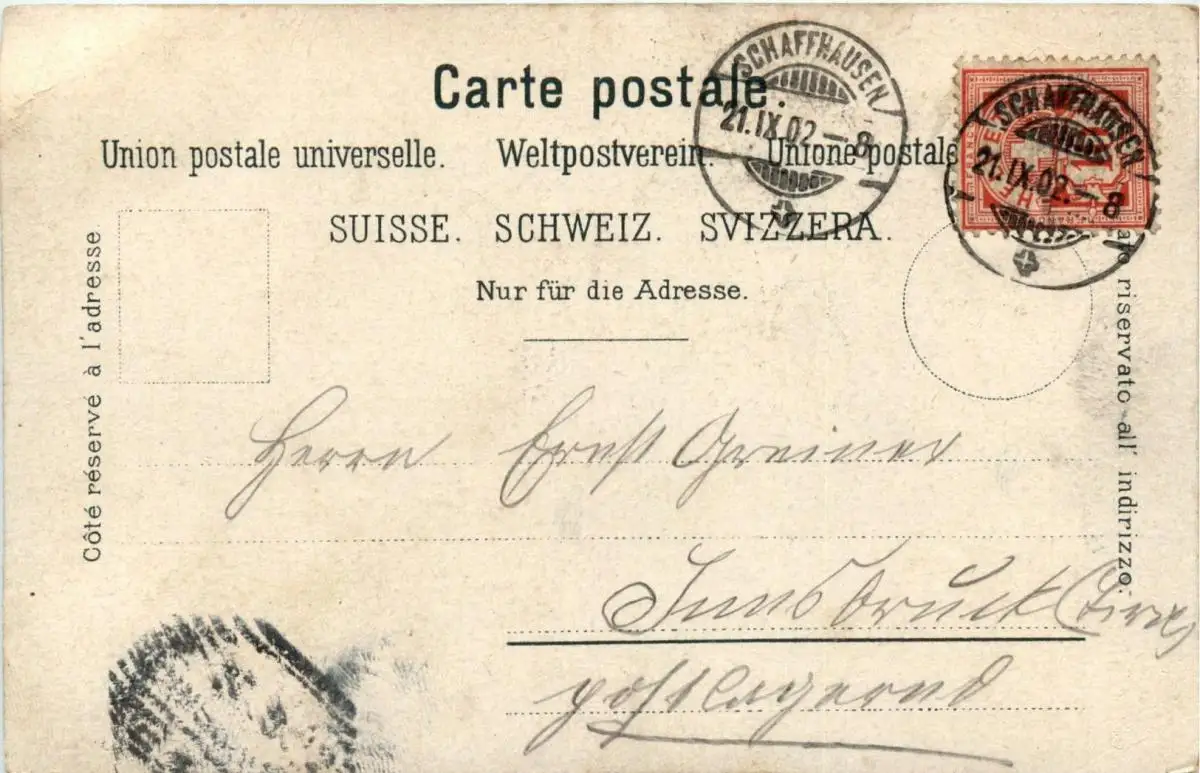 Carte postale.
Union postale universelle. Weltpostverein. Unione postale
SUISSE. SCHWEIZ. SVIZZERA.
Nur für die Adresse.
SCHAFFHAUSEN
21.IX.02.–8
SCHAFFHAUSEN
21.IX.02.–8
Côté réservé à l'adresse
riservato all' indirizzo.
Herrn Ernst Greiner
Innsbruck (Tirol)
postlagernd